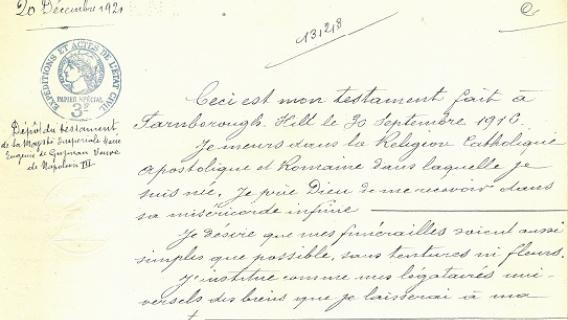 20 Décembre 1921
131218
EXPÉDITIONS ET ACTES DE L'ÉTAT CIVIL
PAPIER SPÉCIAL
3F
Dépôt du testament
de la Majesté Impériale Marie
Eugénie de Guzman Veuve
de Napoléon III.
Ceci est mon testament fait à
Farnborough-Hill le 30 Septembre 1916.
Je meurs dans la Religion Catholique
apostolique et Romaine dans laquelle je
suis née. Je prie Dieu de me recevoir dans
sa miséricorde infinie
Je désire que mes funérailles soient aussi
simples que possible, sans tentures ni fleurs.
J'institue comme mes légataires uni-
versels des biens que je laisserai à ma